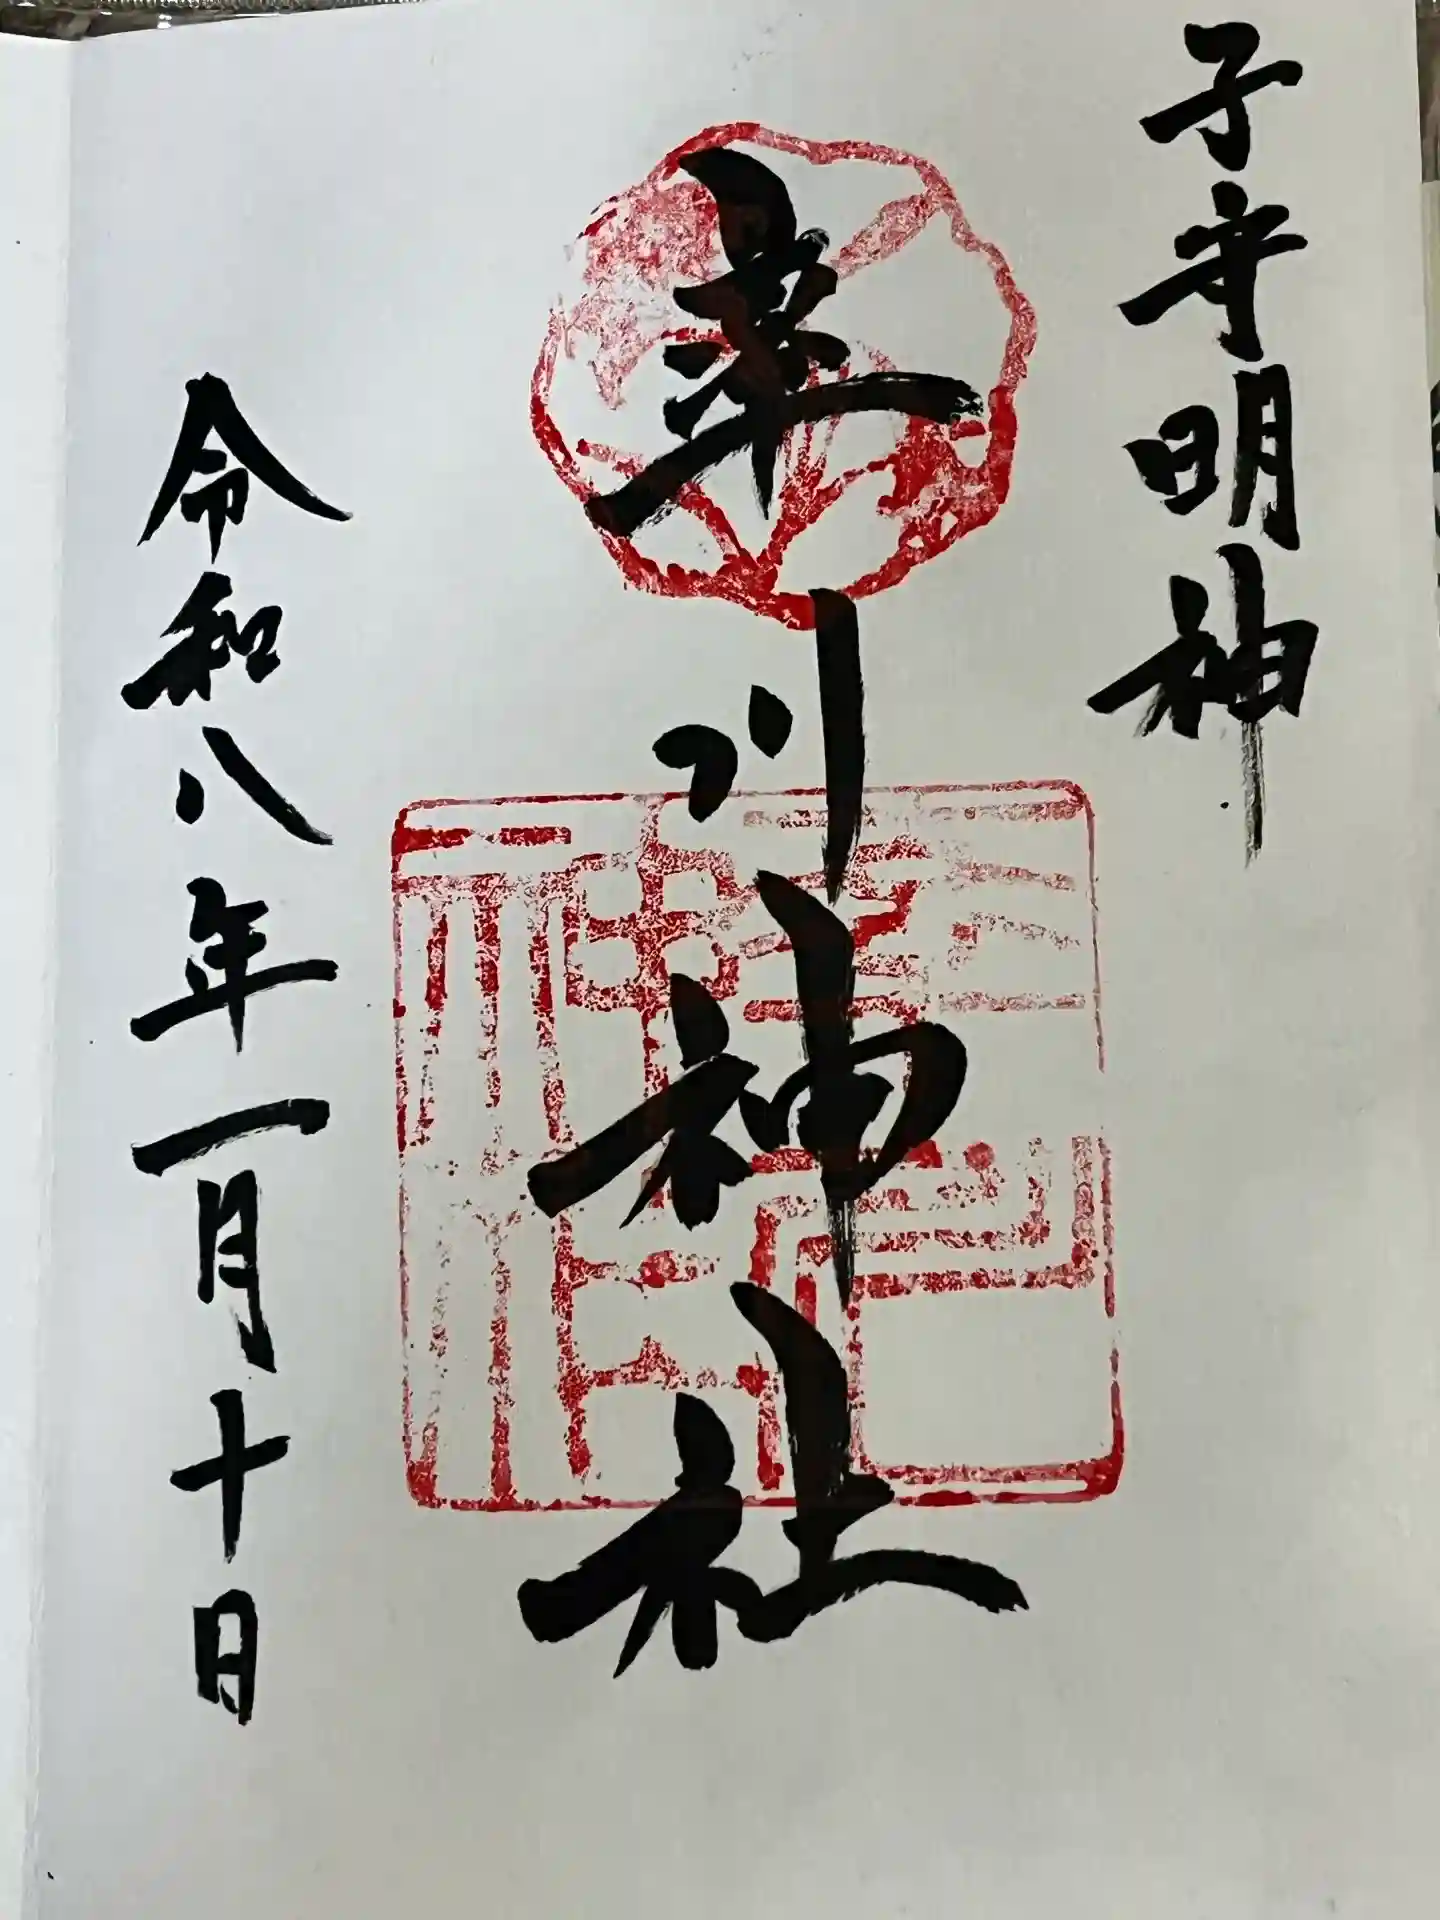 子守明神
率川神社
令和八年一月十日